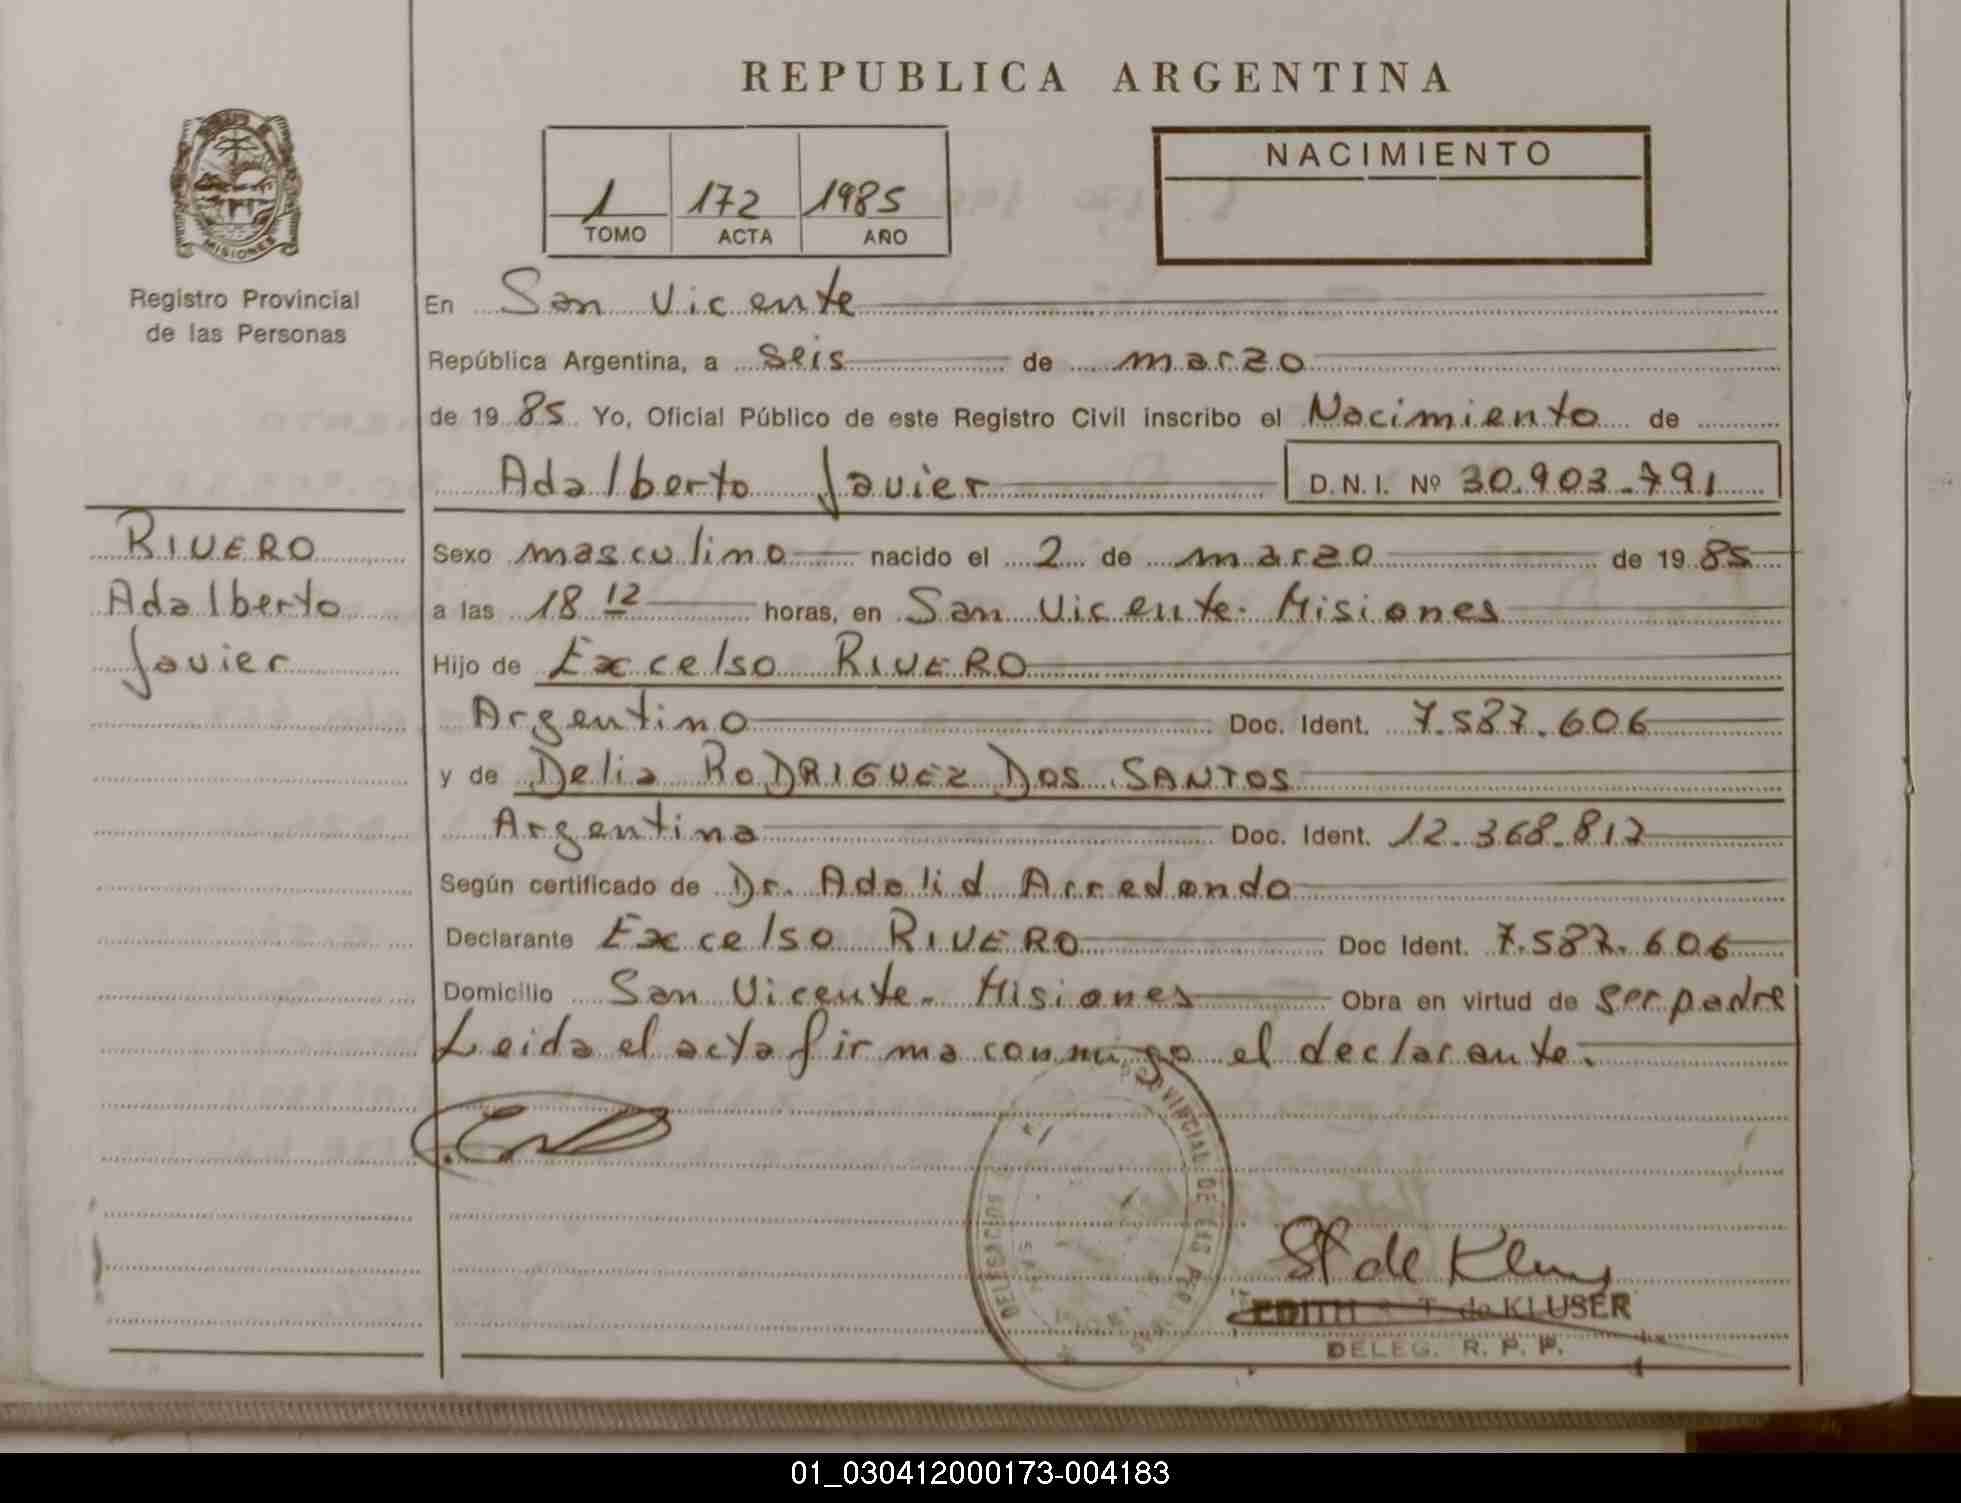 REPUBLICA ARGENTINA
NACIMIENTO
1 172 1985
TOMO ACTA AÑO
MISIONES
Registro Provincial
de las Personas
En San Vicente
República Argentina, a seis de marzo
de 1985 Yo, Oficial Público de este Registro Civil inscribo el Nacimiento de
Adalberto Javier D.N.I. Nº 30.903.791
RIVERO
Adalberto
Javier
Sexo masculino nacido el 2 de marzo de 1985
a las 18 12 horas, en San Vicente. Misiones
Hijo de Excelso RIVERO
Argentino Doc. Ident. 7.587.606
y de Delia RODRIGUEZ DOS SANTOS
Argentina Doc. Ident. 12.368.817
Según certificado de Dr. Adolid Arredondo
Declarante Excelso RIVERO Doc Ident. 7.587.606
Domicilio San Vicente. Misiones Obra en virtud de ser padre
Leida el acta firma conmigo el declarante.
DELEGACION PROVINCIAL DE LAS PERSONAS
St de Klus
EDITH S. T. de KLUSER
DELEG. R. P. P.
01_030412000173-004183